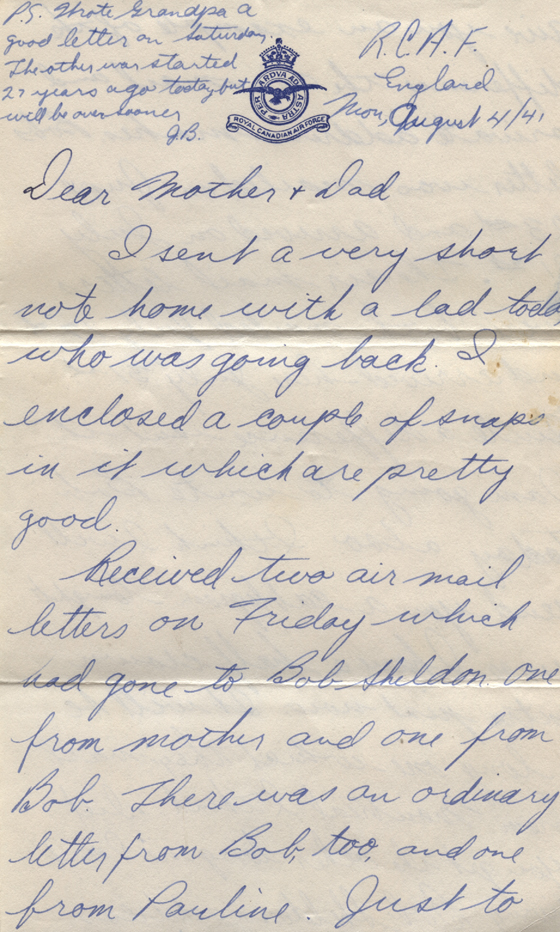 P.S. Wrote Grandpa a
good letter on Saturday.
The other was started
27 years ago today but
will be over sooner
J.B.
PER ARDVA AD ASTRA
ROYAL CANADIAN AIR FORCE
R.C.A.F.
England
Mon, August 4/41
Dear Mother + Dad
I sent a very short
note home with a lad toda
who was going back. I
enclosed a couple of snaps
in it which are pretty
good.
Received two air mail
letters on Friday which
had gone to Bob Sheldon one
from mother and one from
Bob. There was an ordinary
letter from Bob, too, and one
from Pauline. Just to